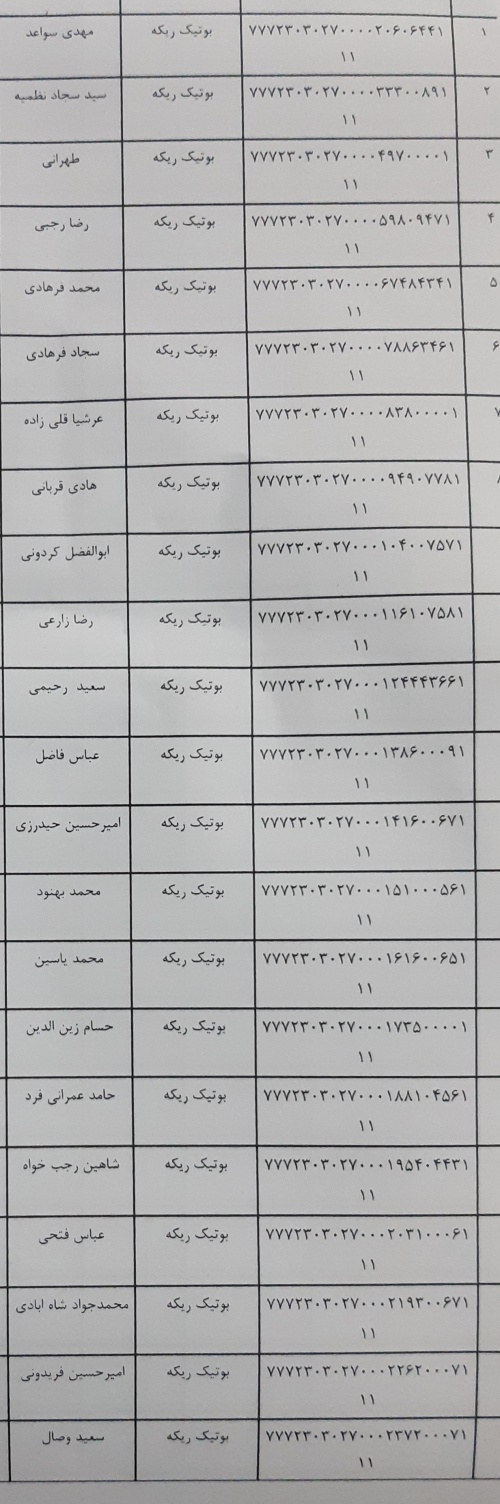 ۱ ۷۷۷۲۳۰۳۰۲۷۰۰۰۰۲۰۶۰۶۴۴۱ بوتیک ریکه مهدی سواعد
۱۱
۲ ۷۷۷۲۳۰۳۰۲۷۰۰۰۰۳۳۳۰۰۸۹۱ بوتیک ریکه سید سجاد نظمیه
۱۱
۳ ۷۷۷۲۳۰۳۰۲۷۰۰۰۰۴۹۷۰۰۰۰۱ بوتیک ریکه طهرانی
۱۱
۴ ۷۷۷۲۳۰۳۰۲۷۰۰۰۰۵۹۸۰۹۴۷۱ بوتیک ریکه رضا رجبی
۱۱
۵ ۷۷۷۲۳۰۳۰۲۷۰۰۰۰۶۷۴۸۴۳۴۱ بوتیک ریکه محمد فرهادی
۱۱
۶ ۷۷۷۲۳۰۳۰۲۷۰۰۰۰۷۸۸۶۳۴۶۱ بوتیک ریکه سجاد فرهادی
۱۱
۷ ۷۷۷۲۳۰۳۰۲۷۰۰۰۰۸۳۸۰۰۰۰۱ بوتیک ریکه عرشیا قلی زاده
۱۱
۷۷۷۲۳۰۳۰۲۷۰۰۰۰۹۴۹۰۷۷۸۱ بوتیک ریکه هادی قربانی
۱۱
۷۷۷۲۳۰۳۰۲۷۰۰۰۱۰۴۰۰۷۵۷۱ بوتیک ریکه ابوالفضل کردونی
۱۱
۷۷۷۲۳۰۳۰۲۷۰۰۰۱۱۶۱۰۷۵۸۱ بوتیک ریکه رضا زارعی
۱۱
۷۷۷۲۳۰۳۰۲۷۰۰۰۱۲۴۴۴۳۶۶۱ بوتیک ریکه سعید رحیمی
۱۱
۷۷۷۲۳۰۳۰۲۷۰۰۰۱۳۸۶۰۰۰۹۱ بوتیک ریکه عباس فاضل
۱۱
۷۷۷۲۳۰۳۰۲۷۰۰۰۱۴۱۶۰۰۶۷۱ بوتیک ریکه امیرحسین حیدرزی
۱۱
۷۷۷۲۳۰۳۰۲۷۰۰۰۱۵۱۰۰۰۵۶۱ بوتیک ریکه محمد بهنود
۱۱
۷۷۷۲۳۰۳۰۲۷۰۰۰۱۶۱۶۰۰۶۵۱ بوتیک ریکه محمد یاسین
۱۱
۷۷۷۲۳۰۳۰۲۷۰۰۰۱۷۳۵۰۰۰۰۱ بوتیک ریکه حسام زین الدین
۱۱
۷۷۷۲۳۰۳۰۲۷۰۰۰۱۸۸۱۰۴۵۶۱ بوتیک ریکه حامد عمرانی فرد
۱۱
۷۷۷۲۳۰۳۰۲۷۰۰۰۱۹۵۴۰۴۴۳۱ بوتیک ریکه شاهین رجب خواه
۱۱
۷۷۷۲۳۰۳۰۲۷۰۰۰۲۰۳۱۰۰۰۶۱ بوتیک ریکه عباس فتحی
۱۱
۷۷۷۲۳۰۳۰۲۷۰۰۰۲۱۹۳۰۰۶۷۱ بوتیک ریکه محمدجواد شاه ابادی
۱۱
۷۷۷۲۳۰۳۰۲۷۰۰۰۲۲۶۲۰۰۰۷۱ بوتیک ریکه امیرحسین فریدونی
۱۱
۷۷۷۲۳۰۳۰۲۷۰۰۰۲۳۷۲۰۰۰۷۱ بوتیک ریکه سعید وصال
۱۱